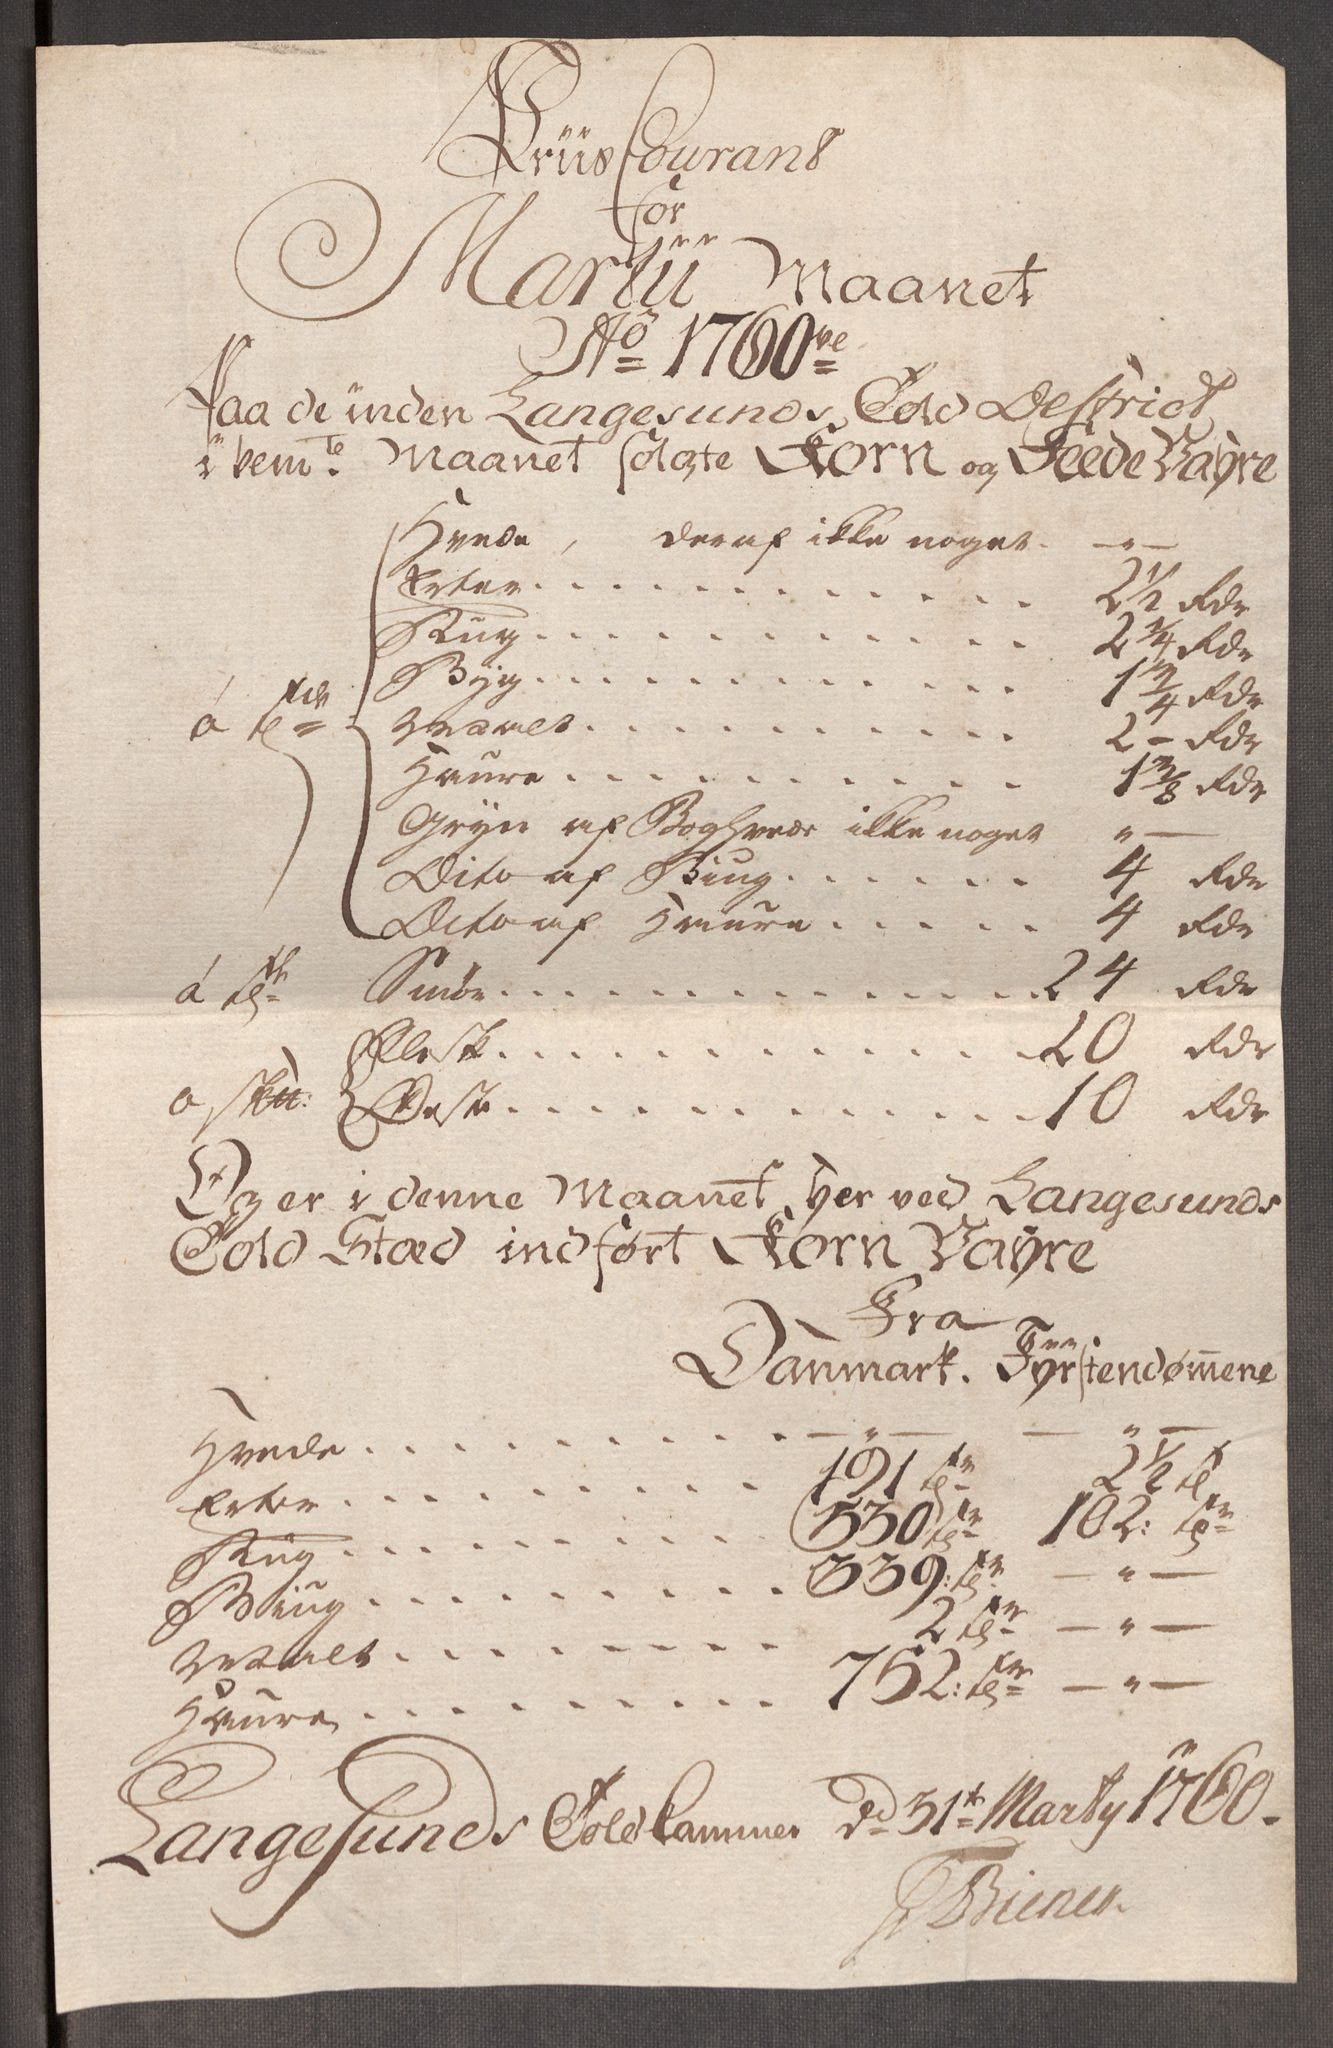 Priis Courant
for
Martii Maanet
Aō 1760ve
Paa de inden Langesunds Told Destrict
i bemte. Maanet solgte Korn og Feede Vayre
Hvede, deraf ikke noget. — " —
Erter. . . . . . . . . . . . 2 1/2 Rdr
Rug. . . . . . . . . . . . 2 1/4 Rdr
Byg. . . . . . . . . . . . 1 3/4 Rdr
á tde Malt. . . . . . . . . . 2 – Rdr
Haure. . . . . . . . . . 1 3/8 Rdr
Gryn af Boghvede ikke noget " —
Dito af Biug. . . . . . 4 Rdr
Dito af Haure. . . . . 4 Rdr
á tde Smör. . . . . . . . . . . . 24 Rdr
Flesk. . . . . . . . . . . . 20 Rdr
a Sk℔: Ost. . . . . . . . . . . . 10 Rdr
Og er i denne Maanet her ved Langesunds
Told Stæd indført Korn Vayre
Fra
Danmark. Fyrstendom̄ene
Hvede. . . . . . . . . . . — " — — " —
Erter. . . . . . . . . . 191 tr 2 1/2 t
Rug. . . . . . . . . . 530 tr 102: tr
Biug. . . . . . . . . . 339: tr — " —
Malt. . . . . . . . . . 2 tr — " —
Haure. . . . . . . . . . 752: tr — " —
Langesunds Told Cammer Dd 31te Marty 1760.
Biener.